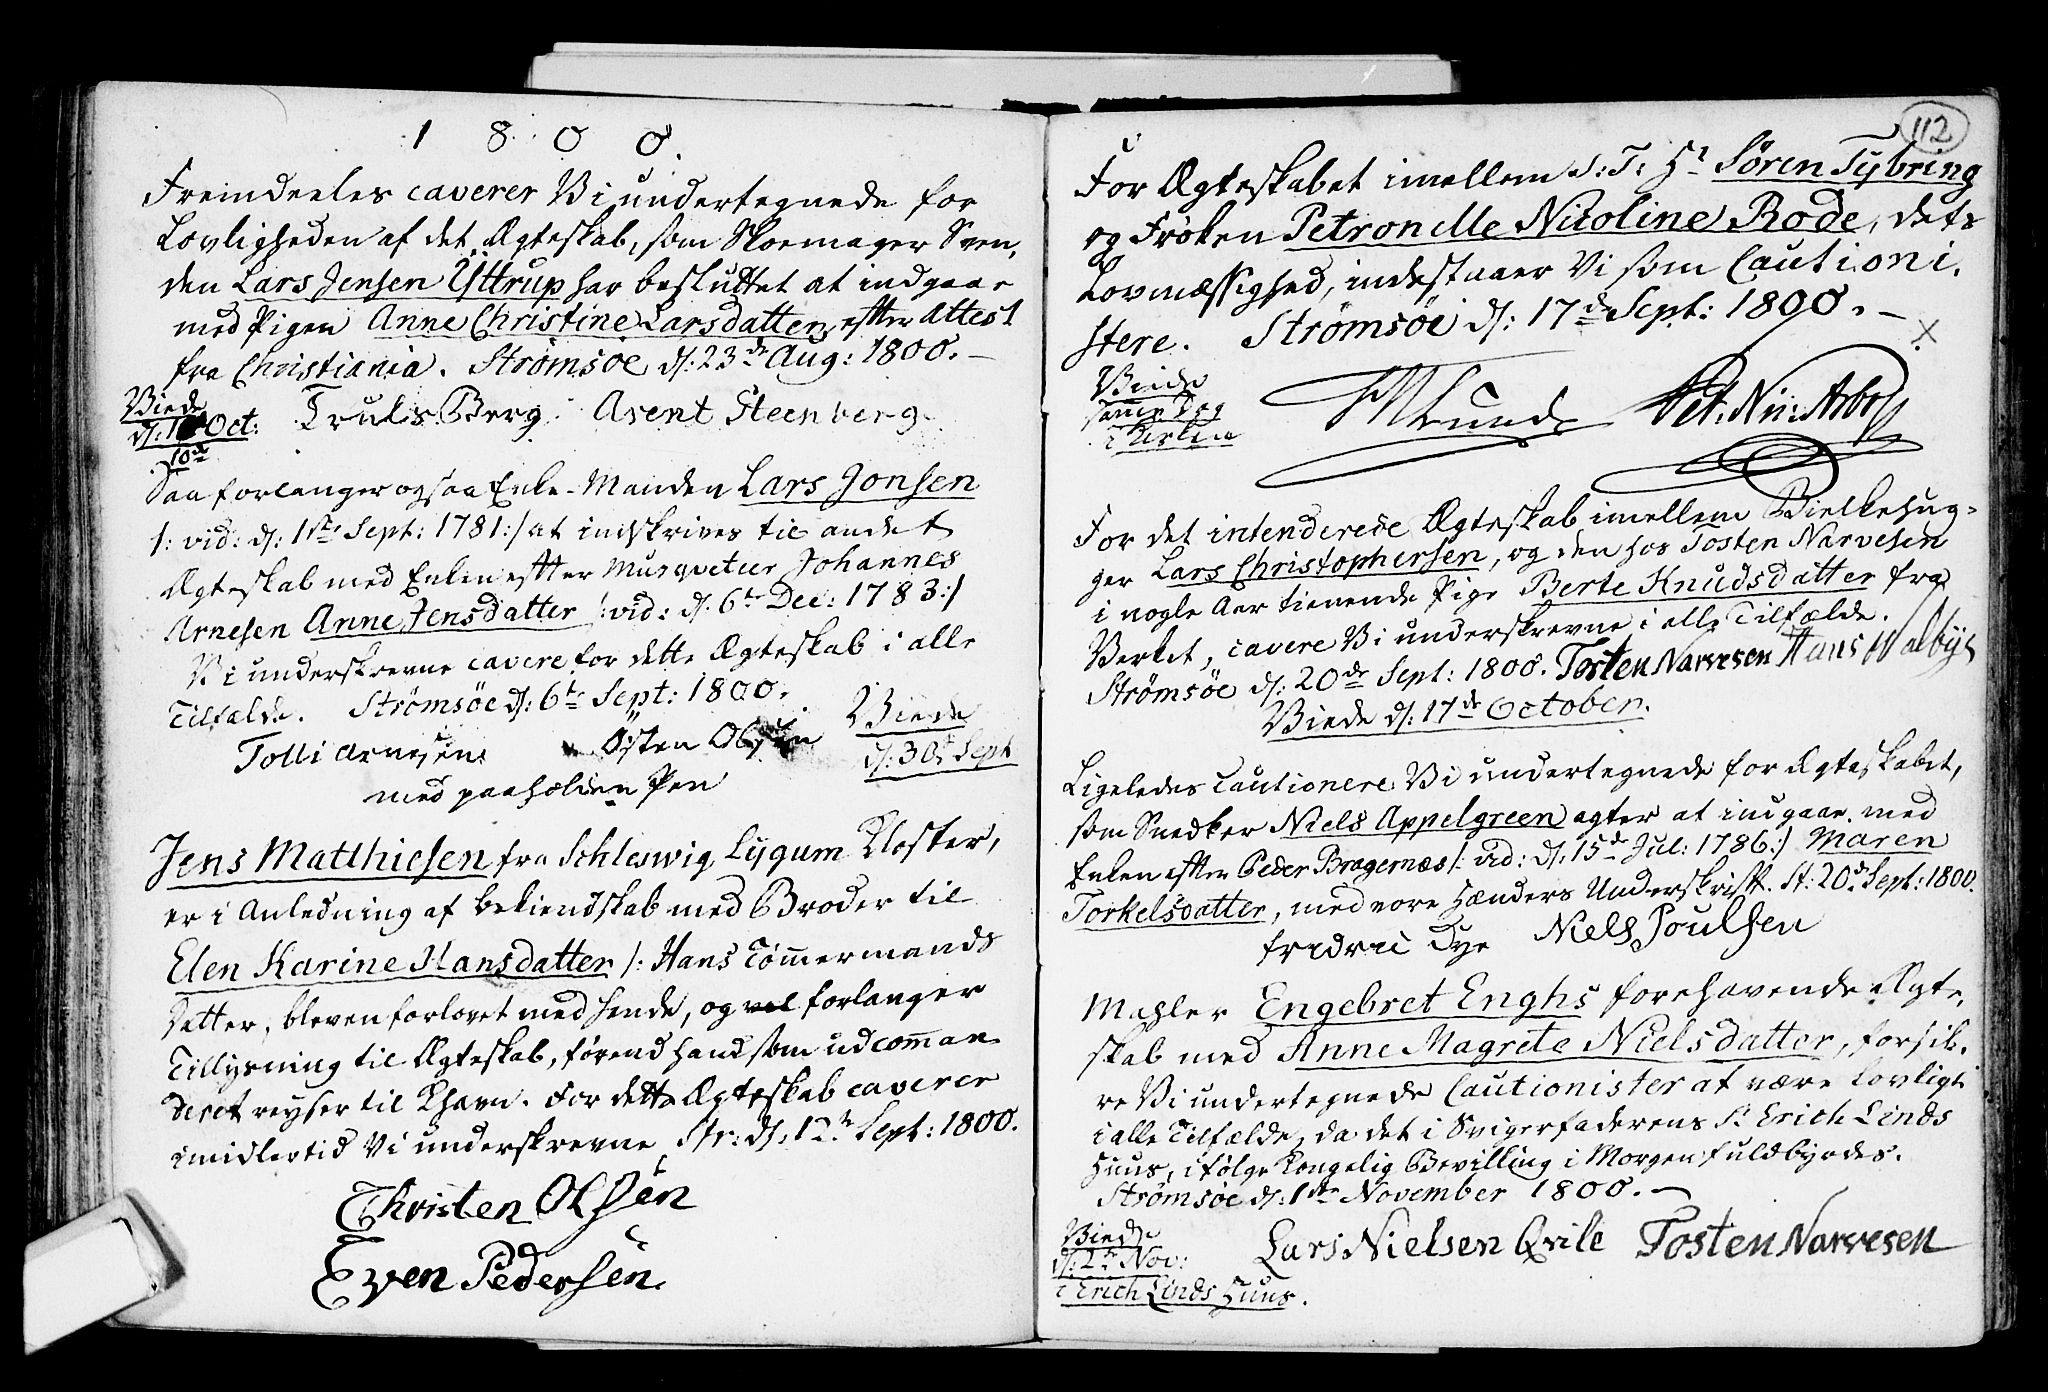 1800.
Fremdeeles caverer Vi undertegnede for
Lovligheden af det Ægteskab, som Skoemager Sven,
den Lars Jensen Usttrup har besluttet at indgaae
med Pigen Anne Christine Larsdatter, efter Attest
fra Christiania. Strømsøe d/: 23de Aug: 1800. —
Viede
d/: 1 Oct:
10de
Truls Berg. Arent Steenberg.
Saa forlanger ogsaa Enke-Manden Lars Jonsen
/: vid: d/: 1ste Sept: 1781:/ at indskrives til andet
Ægteskab med Enken efter Musqveteer Johannes
Arnesen Anne Jensdatter /: vid: d/. 6te Dec: 1783:/
Vi underskrevne cavere for dette Ægteskab i alle
Tilfælde. Strømsøe d/: 6te Sept: 1800.
Tolli Arnesen. Østen Olsen
med paaholden Pen
Viede
d/: 30te Sept
Jens Matthiesen fra Schleswig, Lygum Kloster,
er i Anledning af bekiendskab med Broder til
Elen Karine Hansdatter /: Hans Tømmermands
Datter, bleven forlovet med hende, og vel forlanger
Tillysning til Ægteskab, førend hand som udcomman
deret reyser til Khavn. For dette Ægteskab caverer
imidlertid Vi underskrevne Str: d/: 12te Sept: 1800.
Christen Olsen
Even Pedersen.
112
For Ægteskabet imellem S: T: Hr Søren Tybring
og Frøken Petronelle Nicoline Rode, dets
Lovmæssighed, indestaaer Vi som Cautioni,
stere. Strømsøe d/: 17de Sept: 1800. —
X
Viede
samme Dag
i Kirken
Lund Pet. Nic: Arbo
For det intenderede Ægteskab imellem Bielkehug-
ger Lars Christophersen, og den hos Tosten Narvesen
i nogle Aar tienende Pige Berte Knudsdatter fra
Verket, cavere Vi underskrevne i alle Tilfælde.
Strømsøe d/: 20de Sept: 1800. Tosten Narvesen Hans Walbye
Viede d/: 17de October.
Ligeledes Cautionere Vi undertegnede for Ægteskabet,
som Snedker Niels Appelgreen agter at indgaae med
Enken efter Peder Bragernæs /: vid: d/: 15de Jul: 1786:/ Maren
Torkelsdatter, med vore Hænders Underskrift. St: 20de Sept: 1800.
fridric Dye Niels Poulsen
Mahler Engebret Enghs forehavende Ægte,
skab med Anne Magrete Nielsdatter, forsik,
re Vi undertegnede Cautionister at være Lovligt
i alle Tilfælde, da det i Svigerfaderens Sr Erich Linds
Huus, ifølge Kongelig Bevilling i Morgen fuldbyrdes.
Strømsøe d/: 1ste November 1800. —
Viede
d/: 2de Nov:
i Erich Linds Huus.
Lars Nielsen Qvile Tosten Narvesen